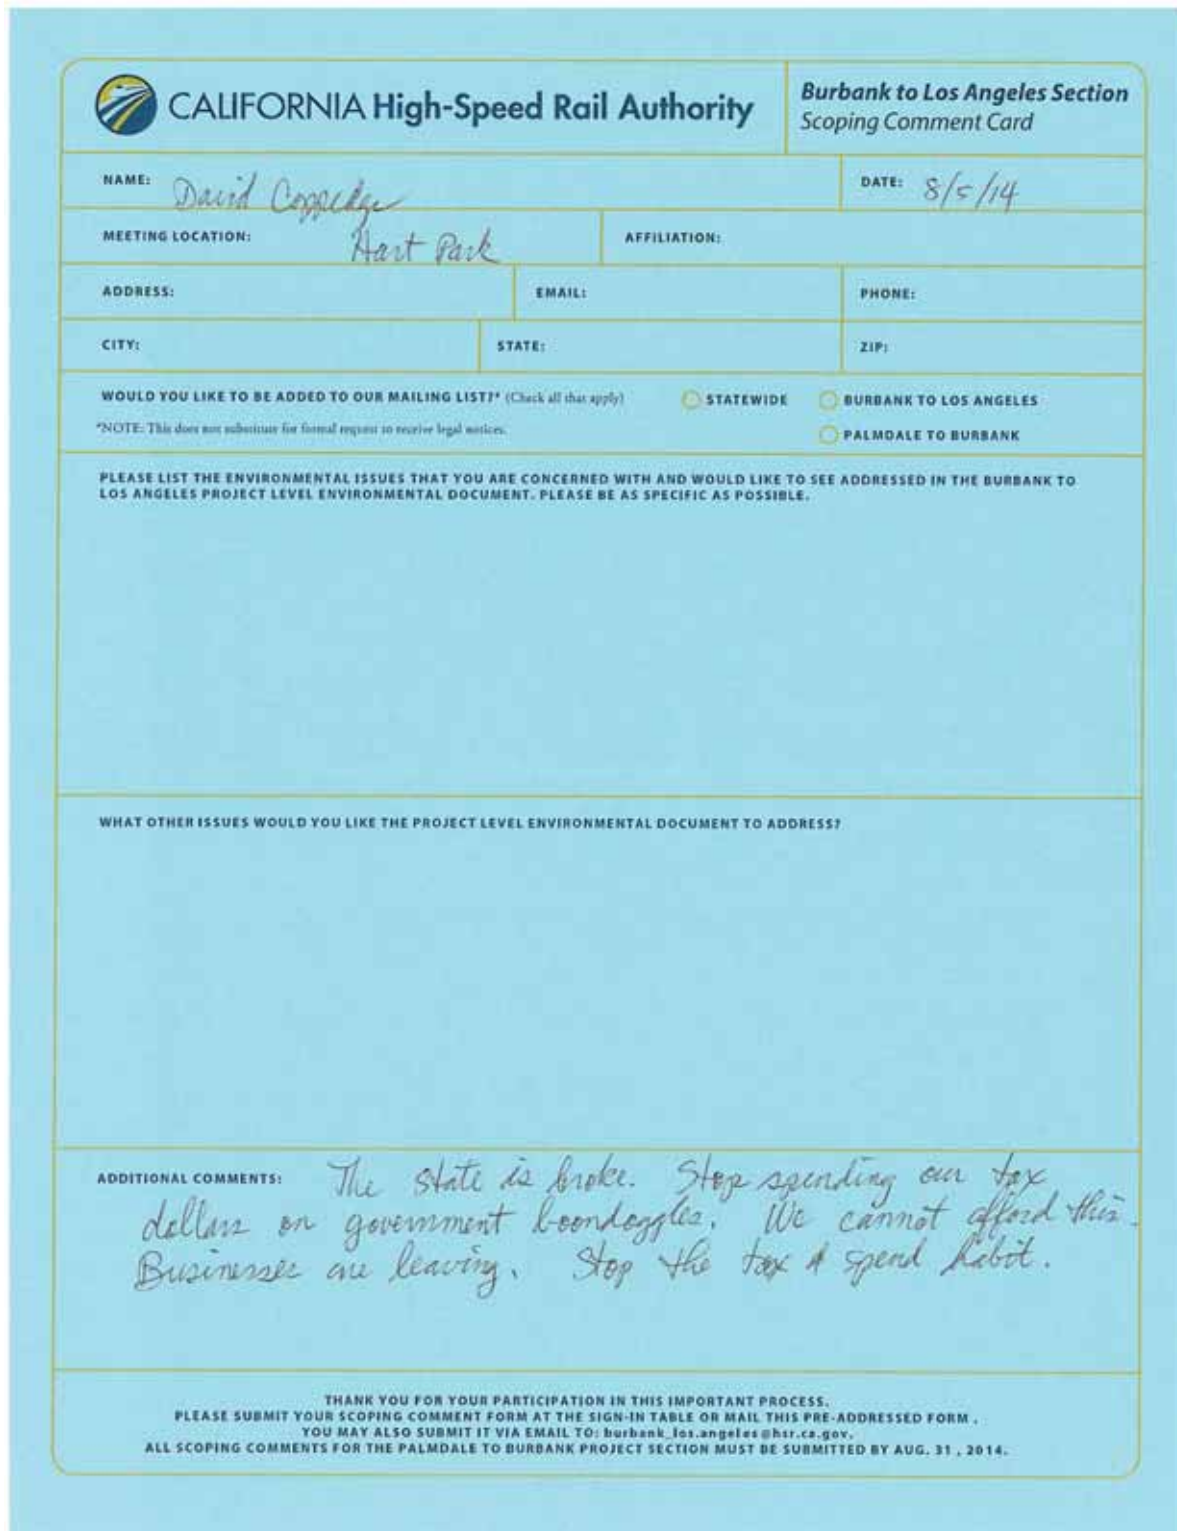 CALIFORNIA High-Speed Rail Authority
Burbank to Los Angeles Section
Scoping Comment Card
NAME: David Coppedge
DATE: 8/5/14
MEETING LOCATION: Hart Park
AFFILIATION:
ADDRESS:
EMAIL:
PHONE:
CITY:
STATE:
ZIP:
WOULD YOU LIKE TO BE ADDED TO OUR MAILING LIST?* (Check all that apply)
STATEWIDE
BURBANK TO LOS ANGELES
*NOTE: This does not substitute for formal request to receive legal notices.
PALMDALE TO BURBANK
PLEASE LIST THE ENVIRONMENTAL ISSUES THAT YOU ARE CONCERNED WITH AND WOULD LIKE TO SEE ADDRESSED IN THE BURBANK TO
LOS ANGELES PROJECT LEVEL ENVIRONMENTAL DOCUMENT. PLEASE BE AS SPECIFIC AS POSSIBLE.
WHAT OTHER ISSUES WOULD YOU LIKE THE PROJECT LEVEL ENVIRONMENTAL DOCUMENT TO ADDRESS?
ADDITIONAL COMMENTS: The state is broke. Stop spending our tax
dollars on government boondoggles. We cannot afford this.
Businesses are leaving. Stop the tax & spend habit.
THANK YOU FOR YOUR PARTICIPATION IN THIS IMPORTANT PROCESS.
PLEASE SUBMIT YOUR SCOPING COMMENT FORM AT THE SIGN-IN TABLE OR MAIL THIS PRE-ADDRESSED FORM .
YOU MAY ALSO SUBMIT IT VIA EMAIL TO: burbank_los.angeles@hsr.ca.gov.
ALL SCOPING COMMENTS FOR THE PALMDALE TO BURBANK PROJECT SECTION MUST BE SUBMITTED BY AUG. 31 , 2014.